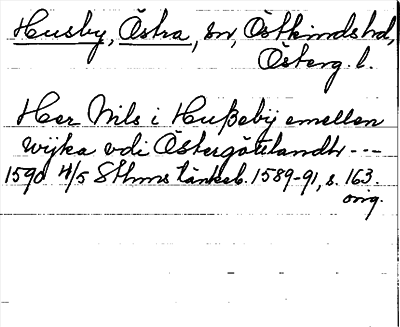 Husby, Östra, sn, Östkindshd,
Österg. l.
Her Nils i Hußebÿ emellan
wijka vdi Östergötlandh ---
1590 4/5 Sthms tänkeb. 1589-91, s. 163.
orig.